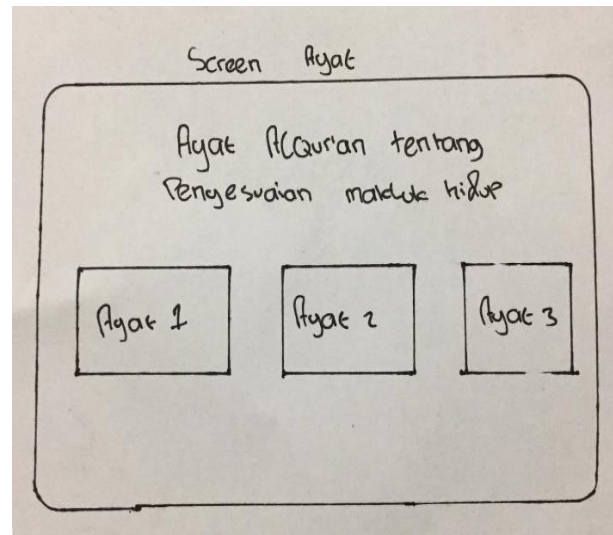 Screen Ayat
Ayat AlQur'an tentang
Penyesuaian makhluk hidup
Ayat 1
Ayat 2
Ayat 3